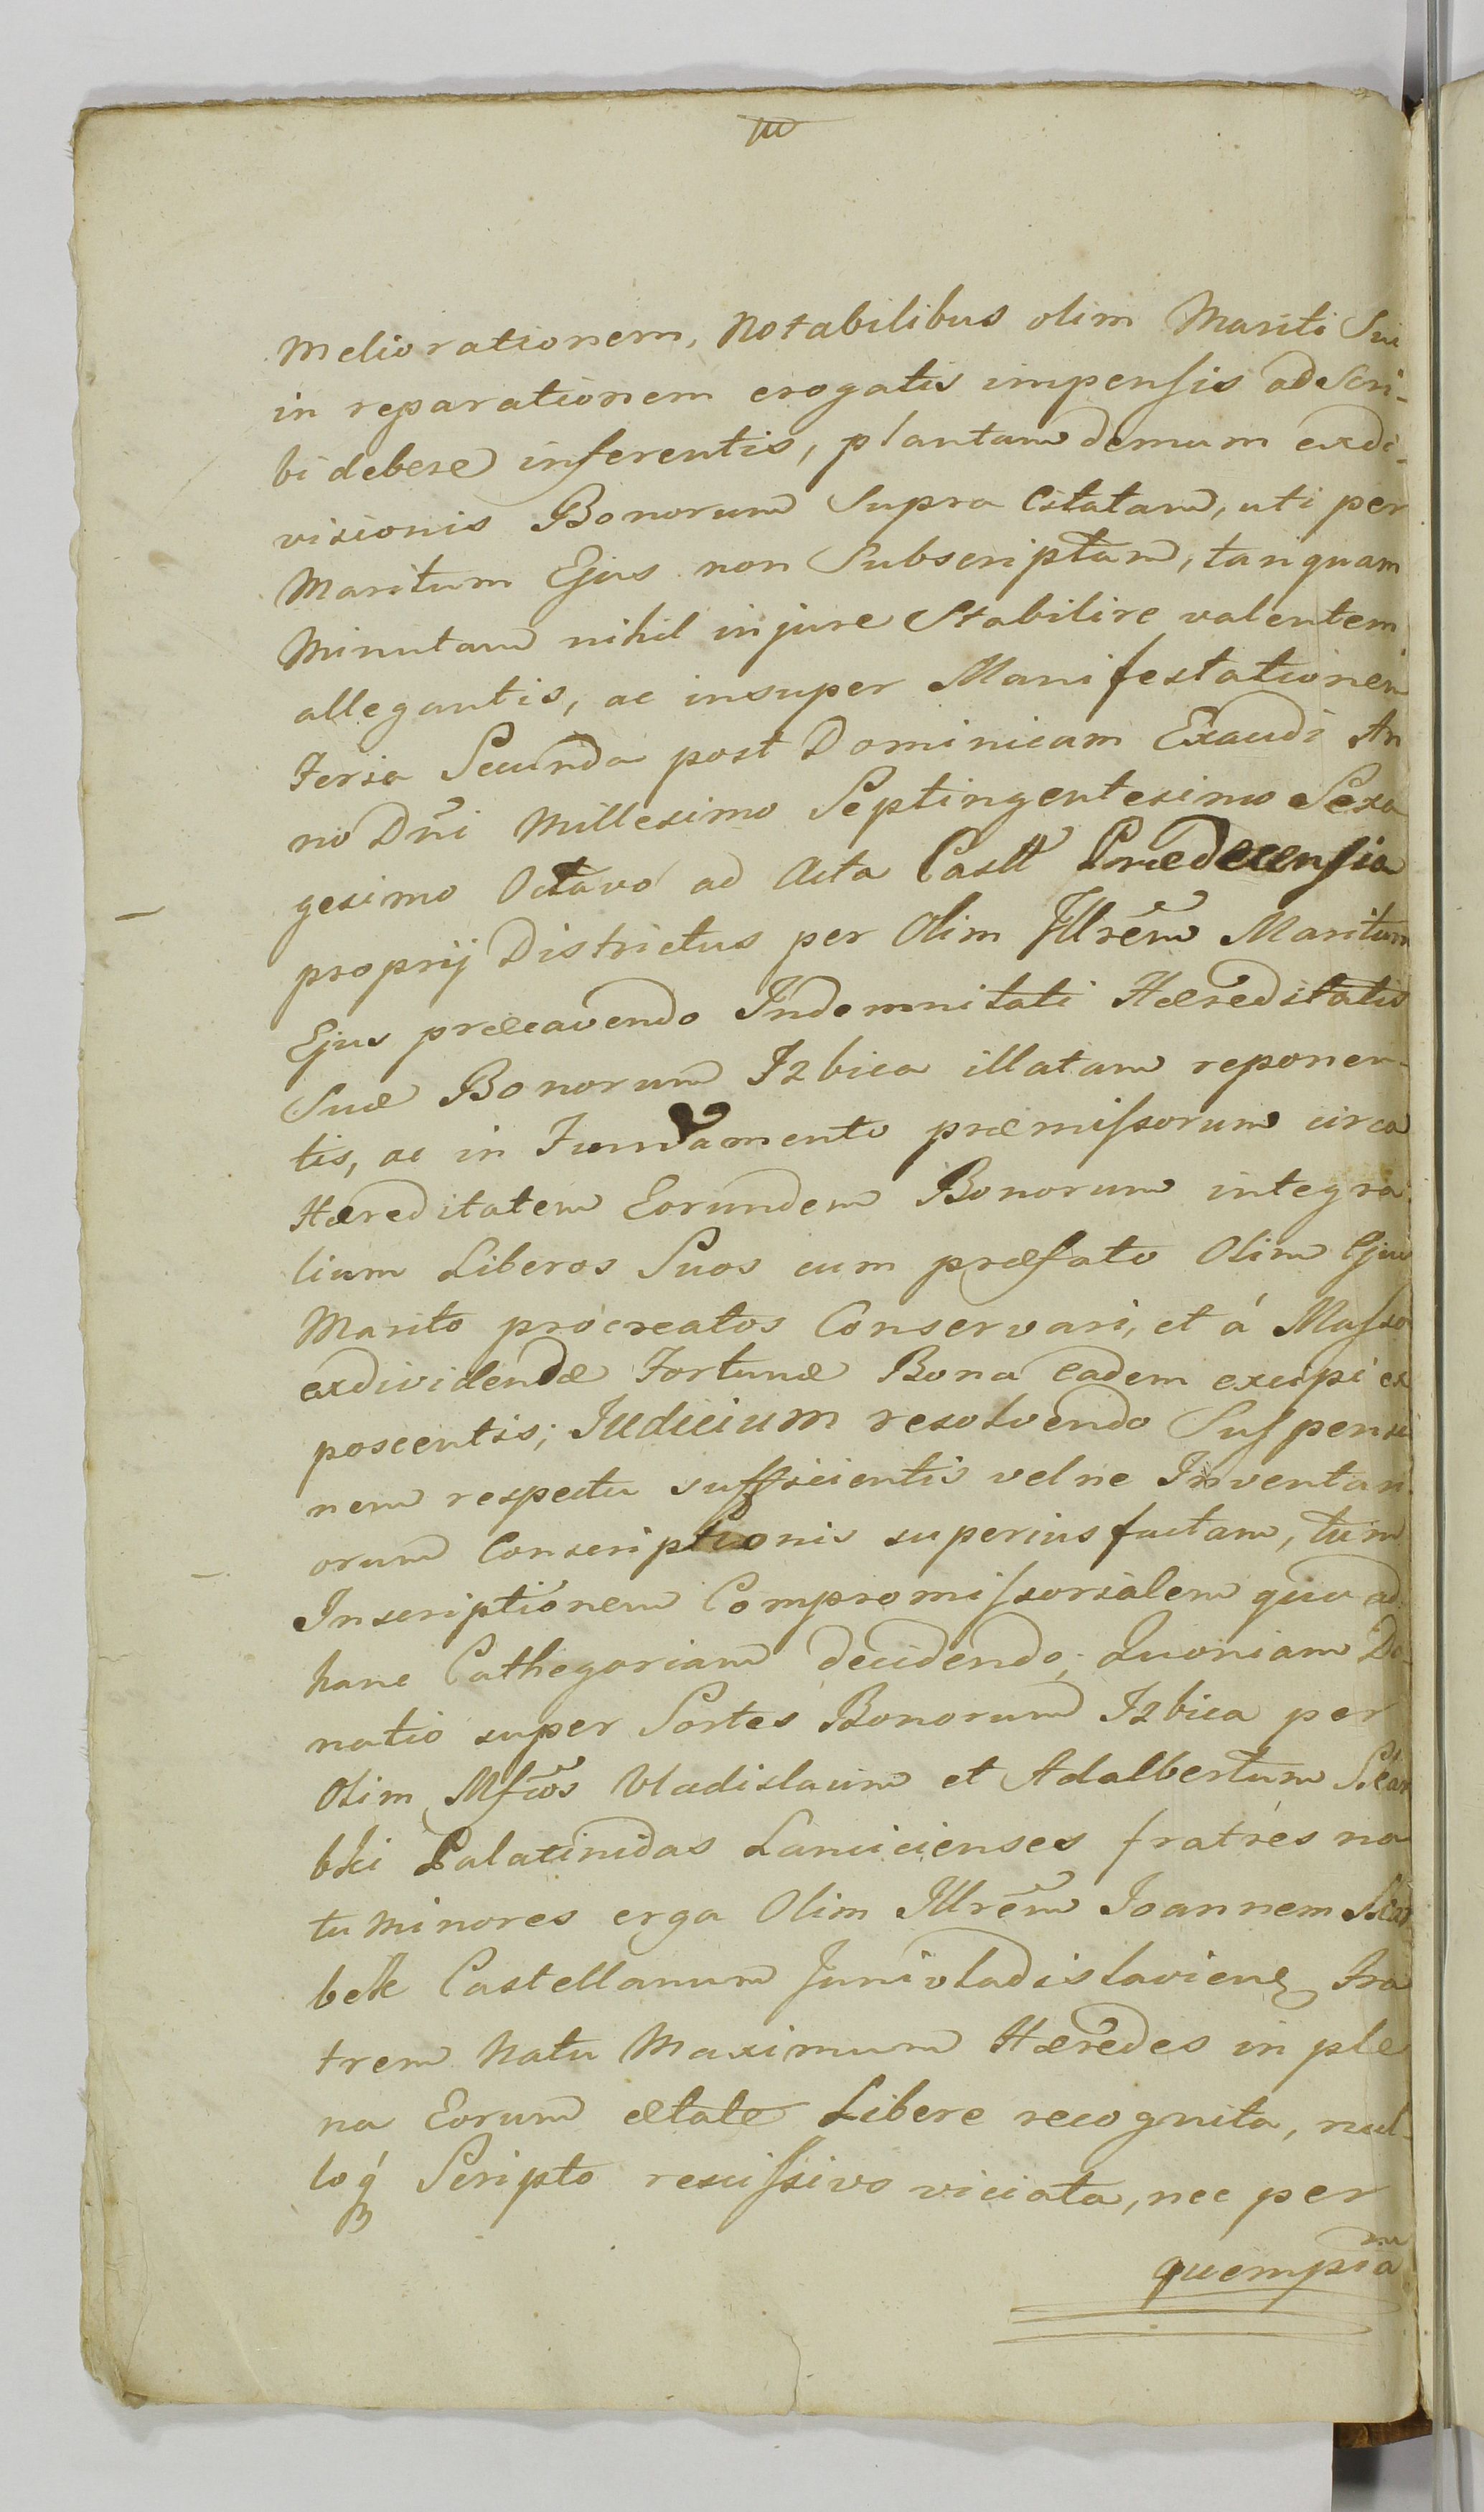 meliorationem, Notabilibus olim Mariti Sui
in reparationem erogatis impensis adscri-
bi debere inferentis, plantam demum exdi-
visionis Bonorum Supra Citatam, uti per
Maritum Ejus non Subscriptam, tanquam
Minutam nihil in jure Stabilire valentem
allegantis, ac insuper Manifestationem
Feria Secunda post Dominicam Exaudi An
no Dñi Millesimo Septingentesimo Sexa
gesimo Octavo ad Acta Castr Prædecensia
proprij Districtus per Olim Illrem Maritum
Ejus præcavendo Indemnitati Hæreditatis
Suæ Bonorum Izbica illatam reponen-
tis, ac in Fundamento præmissorum circa
Hæreditatem Eorundem Bonorum integra
lium Liberos Suos cum præfato Olim Ejus
Marito procreatos Conservari, et á Massa
exdividendæ Fortunæ Bona eadem excipi ex
poscentis; Judicium resolvendo Suspensio
nem respectu sufficientis velne Inventari
orum Conscriptionis superius factam, tum
Inscriptionem Compromissorialem quo ad
hanc Cathegoriam decidendo; Quoniam Do-
natio super Sortes Bonorum Izbica per
Olim Mfcos Vladislaum et Adalbertum Skar
bki Palatinidas Lancicienses fratres na
tu minores erga Olim Illrem Joannem Skar
bek Castellanum Junivladislavien Fra
trem Natu Maximum Hæredes in ple
na Eorum ætate Libere recognita, nul-
loq Scripto rescissivo viciata, nec per
quempiam